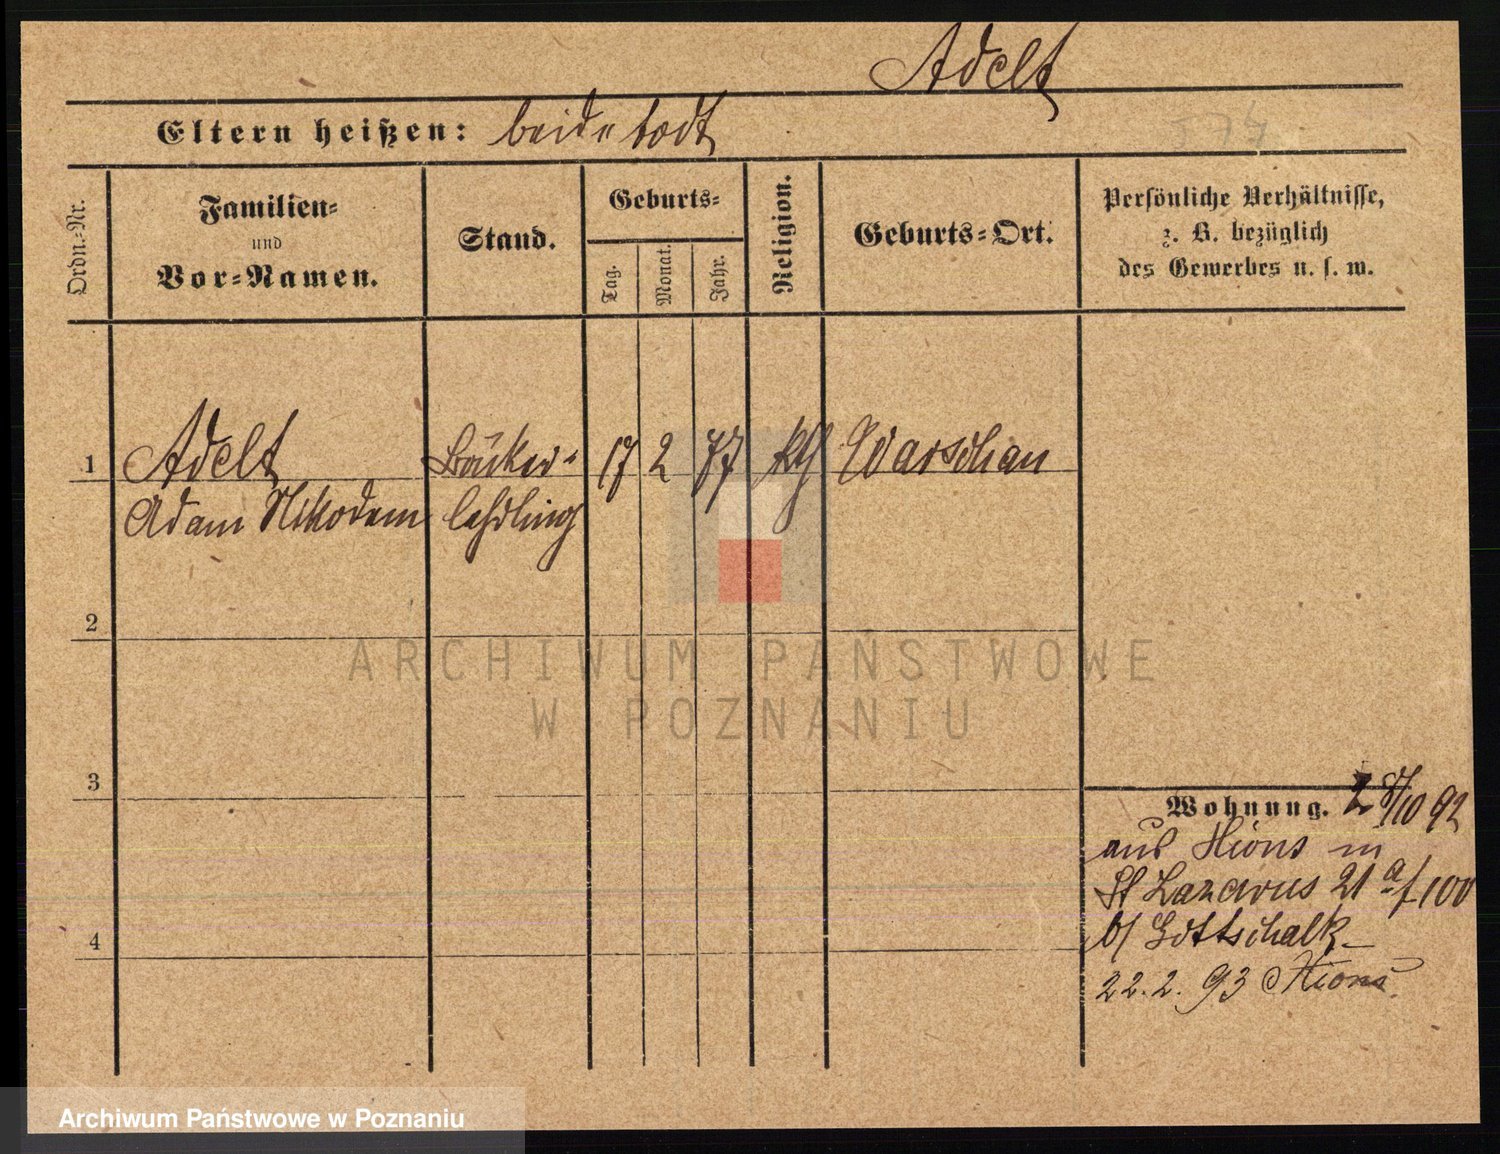 Adelt
Eltern heißen: beide todt
577
Ordn.-Nr.
Familien-
und
Vor-Namen.
Stand.
Geburts-
Tag.
Monat.
Jahr.
Religion.
Geburts-Ort.
Persönliche Verhältnisse,
z. B. bezüglich
des Gewerbes u. s. w.
1 Adelt Bäcker- 17 2 77 kth Warschau
Adam Nikodem lehrling
2
3
4
Wohnung. 28/10 92
aus Xions in
St Lazarus 21 a f 100
b/ Gottschalk
22.2.93 Xions
ARCHIWUM PAŃSTWOWE
W POZNANIU
Archiwum Państwowe w Poznaniu